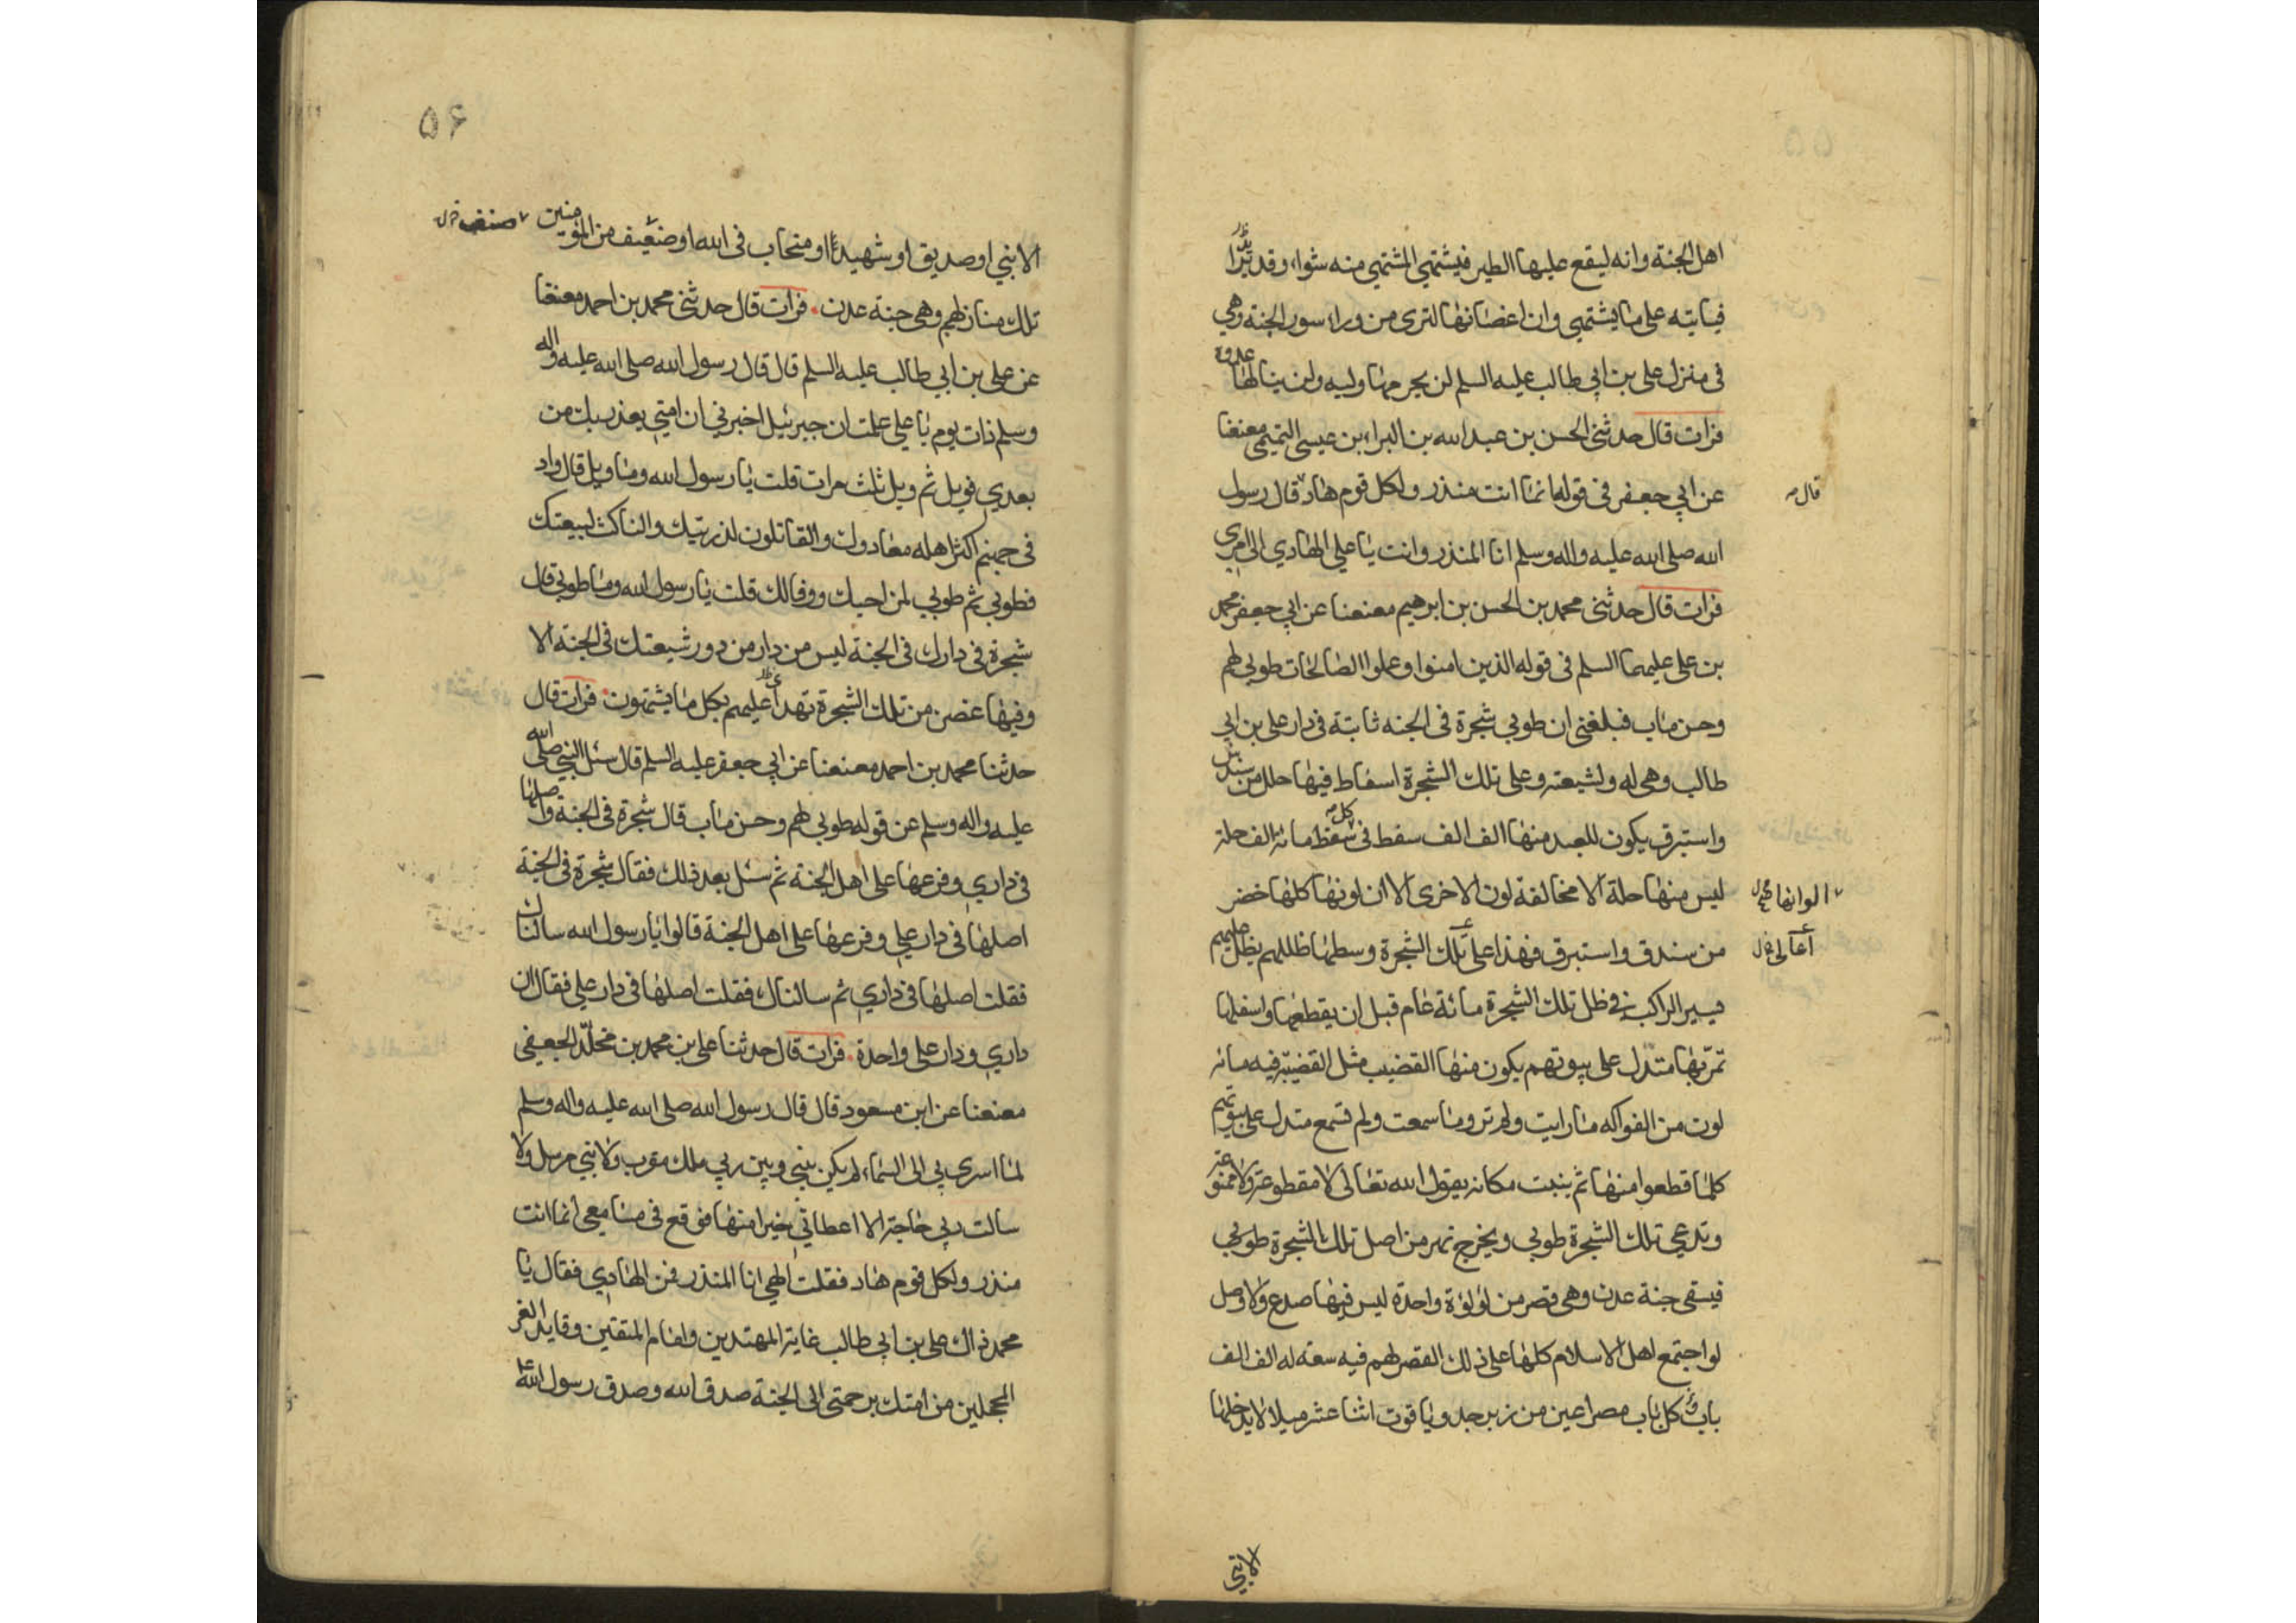 اهل الجنة وانه ليقع عليها الطير فيشتهي المشتهي منه شواء وقديدًا
فياتيه على ما يشتهي وان اغصانها لترى من وراء سور الجنة وهي
في منزل على بن ابي طالب عليه السلم لن يحرمها وليه ولن ينالها عدوه
فرات قال حدثنى الحسن بن عبد الله بن البراء بن عيسى التميمي معنعنا
عن ابي جعفر في قوله انما انت منذر ولكل قوم هاد قال رسول
قال
الله صلى الله عليه واله وسلم انا المنذر وانت يا علي الهادي الى امري
فرات قال حدثنى محمد بن الحسن بن ابرهيم معنعنا عن ابي جعفر محمد
بن على عليهما السلم فى قوله الذين امنوا وعملوا الصالحات طوبي لهم
وحسن ماب فبلغني ان طوبي شجرة فى الجنه ثابتة في دار على بن ابي
طالب وهى له ولشيعته وعلى تلك الشجرة اسفاط فيها حلل من سندس
واستبرق يكون للعبد منها الف الف سفط فى كل سفط مائة الف حلة
ليس منها حلة الا مخالفة لون الاخرى الا ان لونها كلها خضر
الوانها
من سندق واستبرق فهذا على تلك الشجرة وسطها ظللهم يظل عليهم
أعالى
يسير الراكب في ظل تلك الشجرة مائة عام قبل ان يقطعها واسفلها
ثمرتها متدل على بيوتهم يكون منها القضيب مثل القضيبة فيه مائة
لون من الفواكه ما رايت ولم تر وما سمعت ولم تسمع متدل على بيوتهم
كلما قطعوا منها ثم ينبت مكانه يقول الله تعالى لا مقطوعة ولا ممنوعة
وتدعي تلك الشجرة طوبي ويخرج نهر من اصل تلك الشجرة طوبي
فيسقى جنة عدن وهى قصر من لؤلؤة واحدة ليس فيها صدع ولا وصل
لو اجتمع اهل الاسلام كلها على ذلك القصر لهم فيه سعة له الف الف
باب وكل باب مصراعين من زبرجد وياقوت اثنا عشر ميلا لا يدخلها
الا نبي
۵۶
الا نبي او صديق او شهيد او متحاب فى الله او ضعيف من المؤمنين
صنف
تلك منازلهم وهى جنة عدن فرات قال حدثنى محمد بن احمد معنعنا
عن على بن ابي طالب عليه السلم قال قال رسول الله صلى الله عليه واله
وسلم ذات يوم يا علي علمت ان جبرئيل اخبرني ان امتي يغدر بك من
بعدي فويل ثم ويل ثلث مرات قلت يا رسول الله وما ويل قال واد
فى جهنم اكثر اهله معادوك والقاتلون لذريتك والناكث لبيعتك
فطوبي ثم طوبي لمن احبك ووفالك قلت يا رسول الله وما طوبي قال
شجرة فى دارك فى الجنة ليس من دار من دور شيعتك فى الجنة الا
وفيها غصن من تلك الشجرة تهدأ عليهم بكل ما يشتهون فرات قال
حدثنا محمد بن احمد معنعنا عن ابي جعفر عليه السلم قال سئل النبي صلى الله
عليه واله وسلم عن قوله طوبي لهم وحسن ماب قال شجرة فى الجنة واصلها
فى داري وفرعها على اهل الجنة ثم سئل بعد ذلك فقال شجرة فى الجنة
اصلها في دار علي وفرعها على اهل الجنة قالوا يا رسول الله سالناك
فقلت اصلها فى داري ثم سالناك فقلت اصلها فى دار علي فقال ان
داري ودار على واحدة فرات قال حدثنا على بن محمد بن مخلد الجعفي
معنعنا عن ابن مسعود قال قال رسول الله صلى الله عليه واله وسلم
لما اسرى بي الى السماء لم يكن بيني وبين ربي ملك مقرب ولا نبي مرسل ولا
سالت ربي حاجة الا اعطاني خيرا منها فوقع فى مسامعى انما انت
منذر ولكل قوم هاد فقلت الهي انا المنذر فمن الهادي فقال يا
محمد ذاك على بن ابي طالب غاية المهتدين وامام المتقين وقايد الغر
المحجلين من امتك برحمتى الى الجنة صدق الله وصدق رسول الله